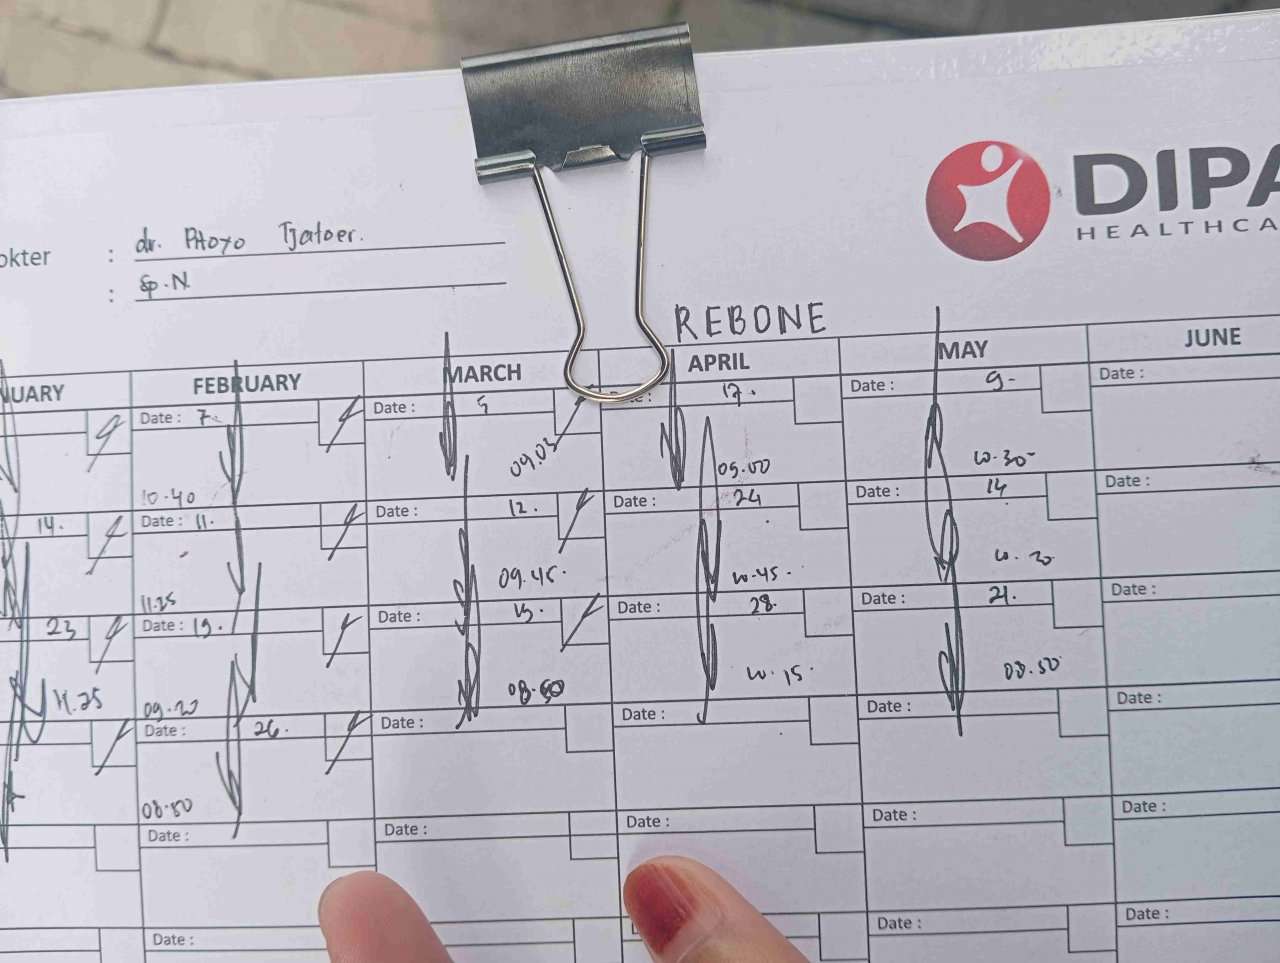 DIPA
HEALTHCA
okter : dr. Ptoyo Tjatoer.
: Sp.N
REBONE
NUARY FEBRUARY MARCH APRIL MAY JUNE
Date : 7. Date : 5 17. Date : 9- Date :
10.40 09.03 09.00 10.30-
14. Date : 11. Date : 12. Date : 24 Date : 14 Date :
11.25 09.45. 10.45- 10.30
23 Date : 19. Date : Date : 28. Date : 21. Date :
11.25 09.20 08.50 10.15. 08.50
Date : 26. Date : Date : Date : Date :
08.50
Date : Date : Date : Date : Date :
Date : Date : Date :